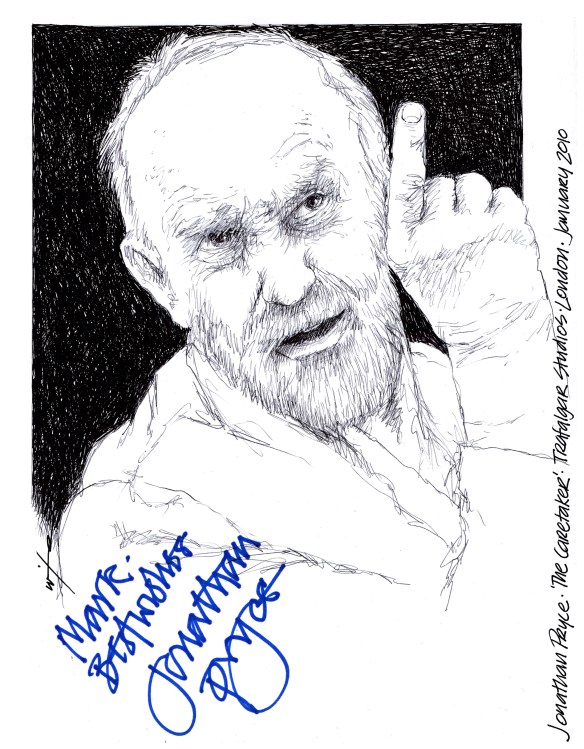 Jonathan Pryce. 'The Caretaker'. Trafalgar Studios. London. January 2010
Mark.
Best wishes
Jonathan
Pryce